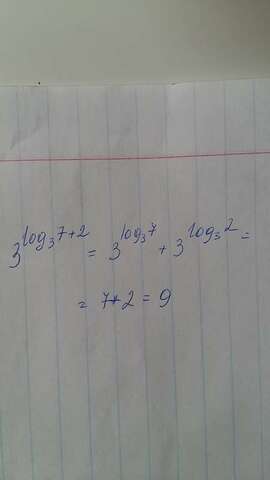 3^{log_3 7+2} = 3^{log_3 7} + 3^{log_3 2} =
= 7+2 = 9